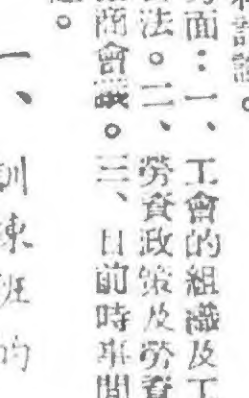 方面：一、工會的組織及工
法。二、勞資政策及勞資
商會議。三、目前時事問
一、訓練班的